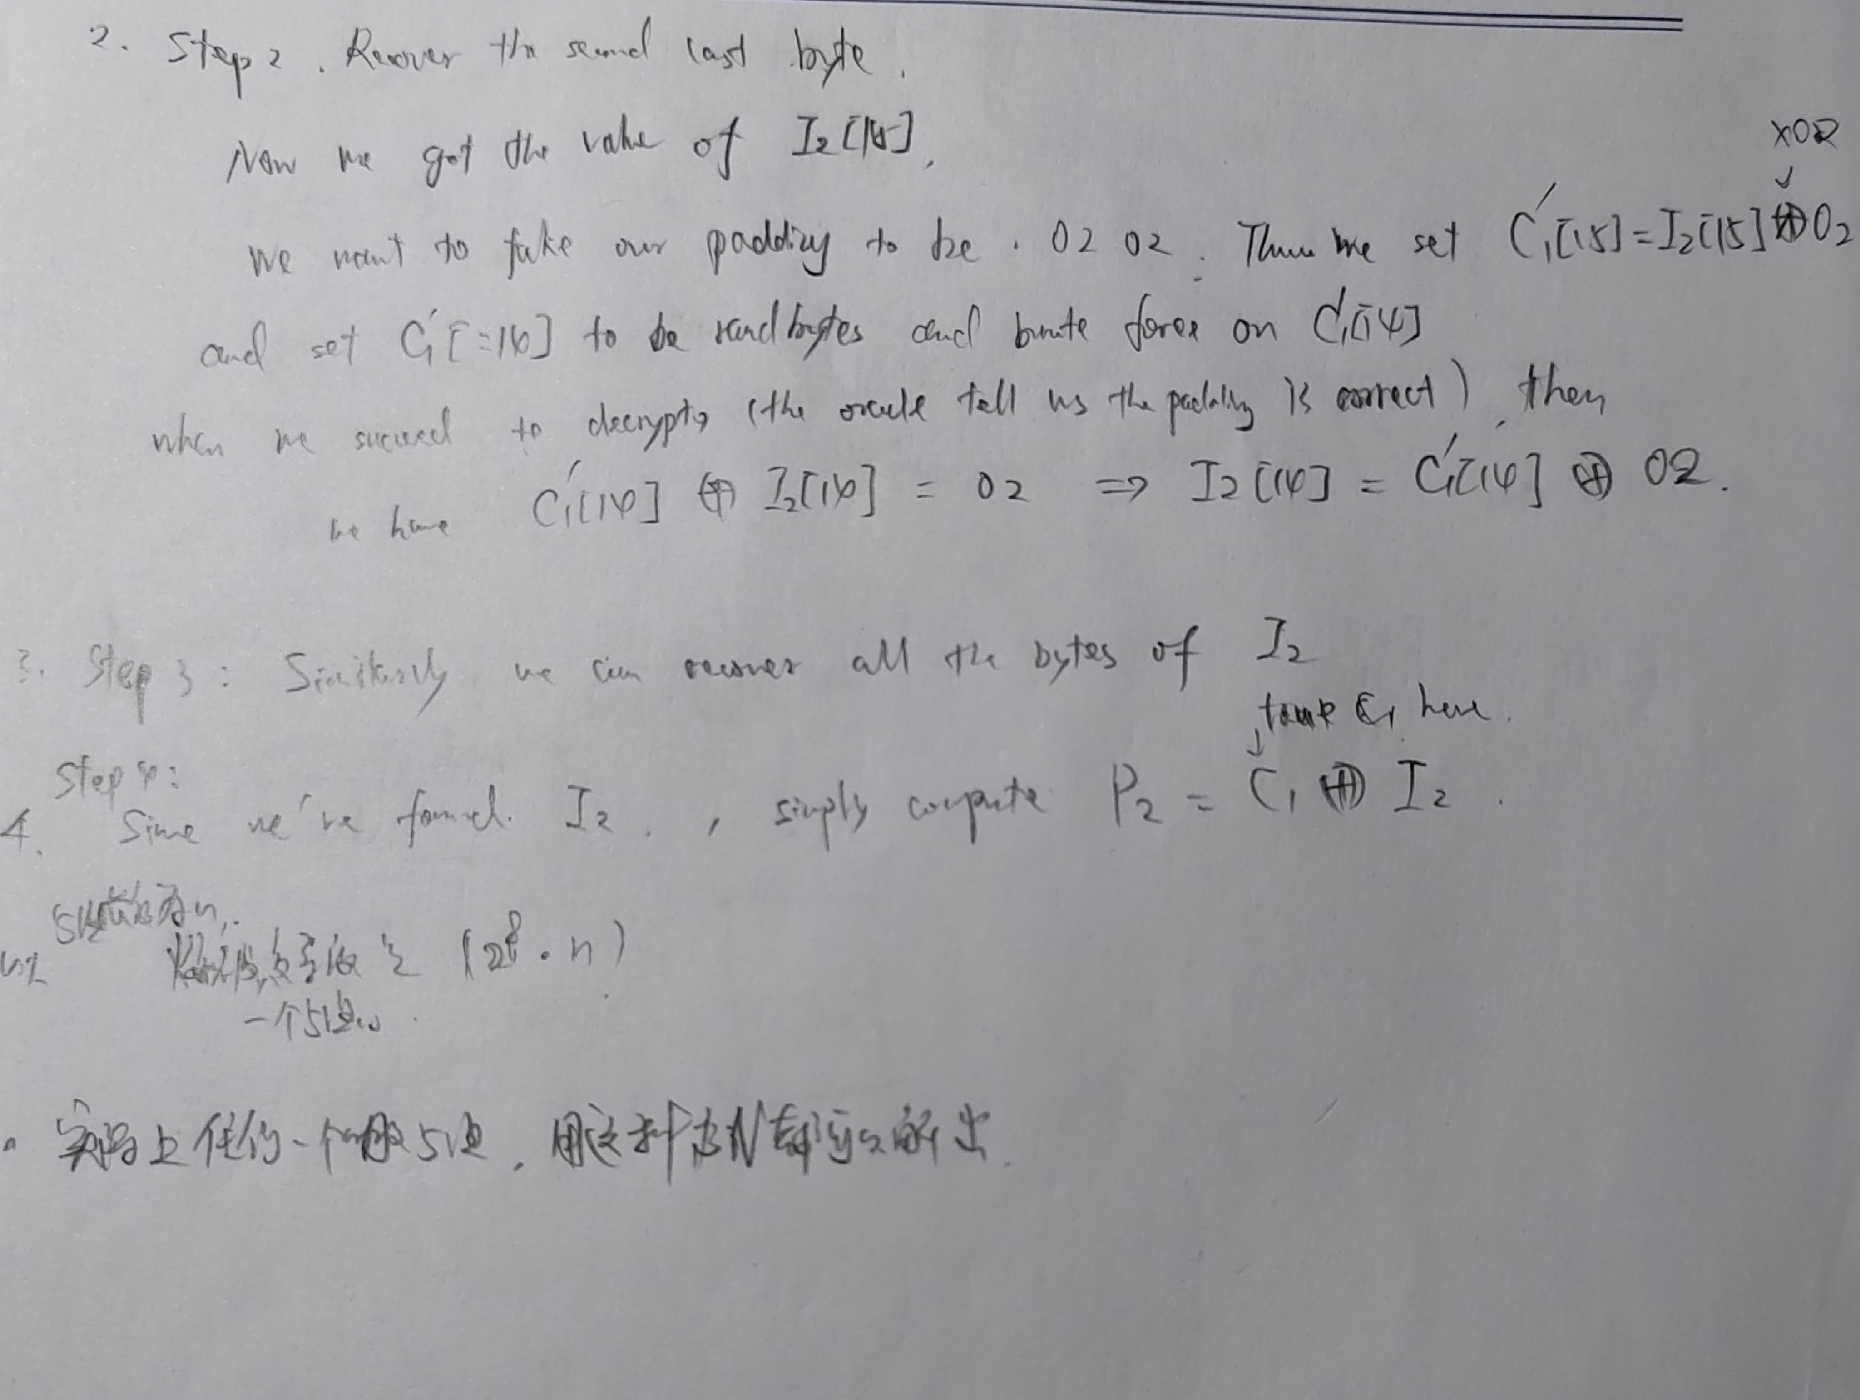 2. Step 2. Recover the second last byte.
Now we got the value of I₂[15],
XOR
We want to fake our padding to be . 02 02. Then we set C₁'[15] = I₂[15] ⊕ 02
and set C₁'[:14] to be rand bytes and brute force on C₁'[14]
when we succeed to decrypt, (the oracle tell us the padding is correct), then
we have C₁'[14] ⊕ I₂[14] = 02 => I₂[14] = C₁'[14] ⊕ 02.
3. Step 3: Similarly we can recover all the bytes of I₂
C₁ here.
Step 4:
4. Since we've found I₂, simply compute P₂ = C₁ ⊕ I₂.
为n.
(2⁸·n)
一个
实际上任何一个 用这种 都可以解出.